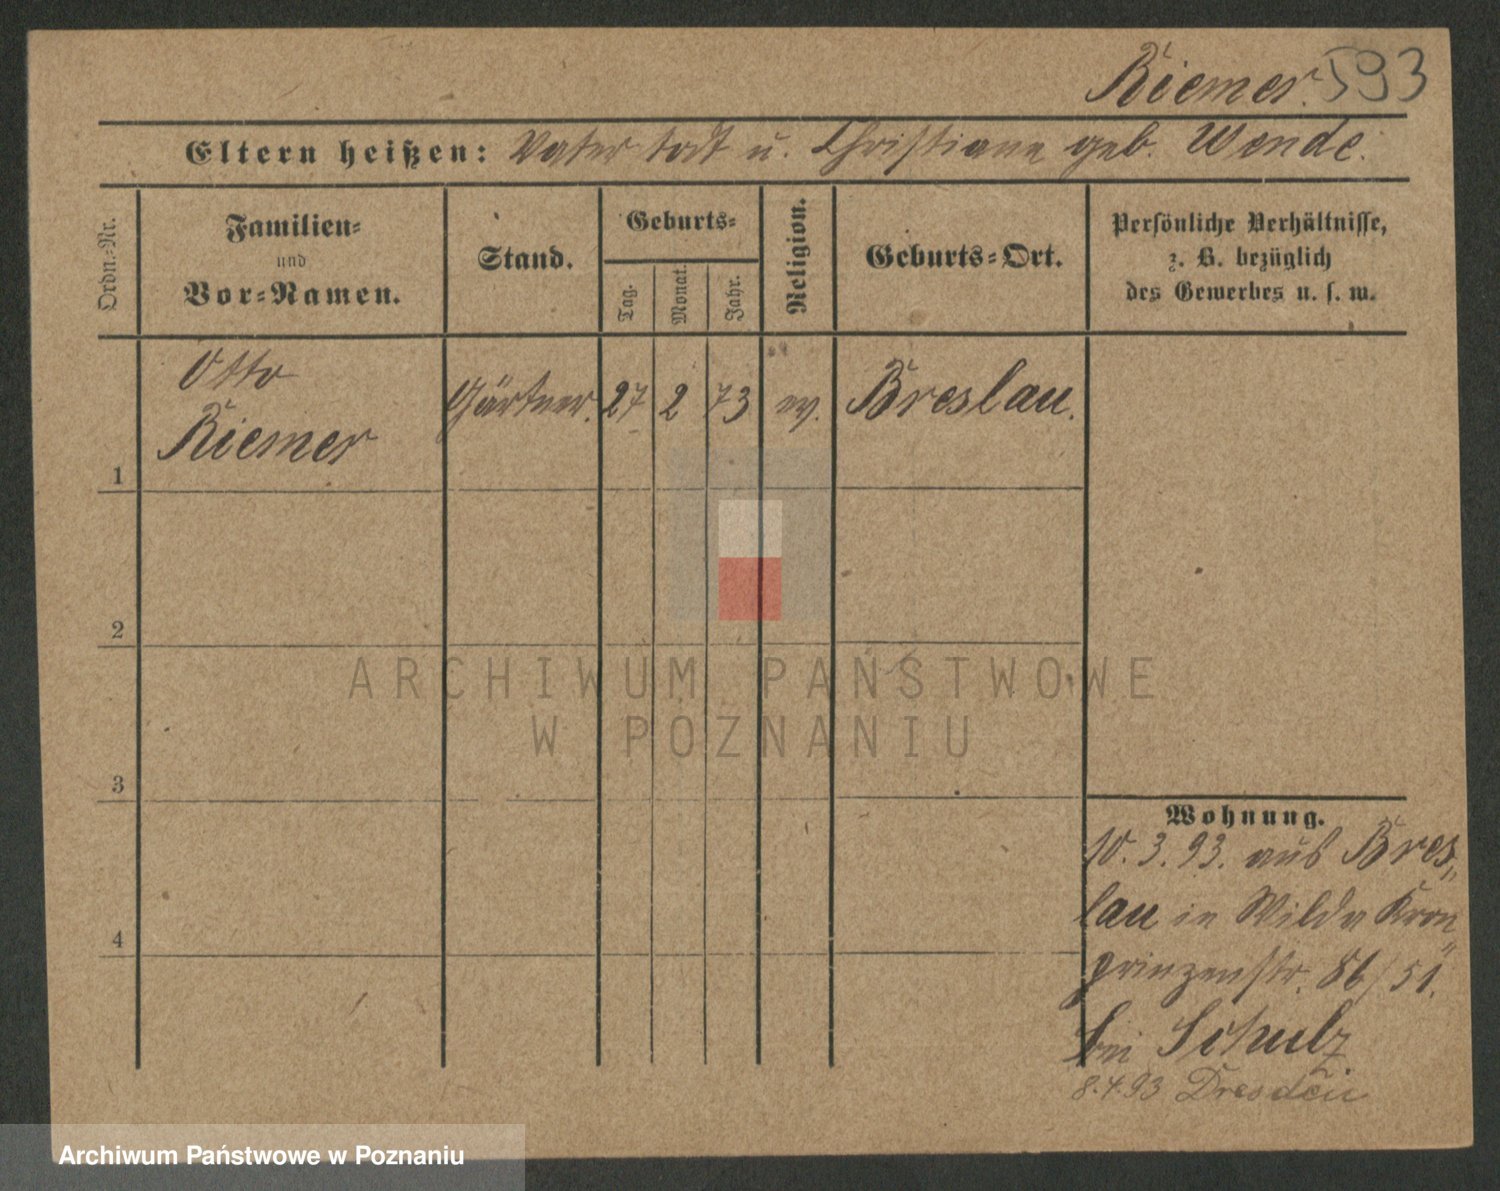 Riemer. 593
Eltern heißen: Vater todt u. Christiane geb. Wende.
Ordn.-Nr.
Familien-
und
Vor-Namen.
Stand.
Geburts-
Tag.
Monat.
Jahr.
Religion.
Geburts-Ort.
Persönliche Verhältnisse,
z. B. bezüglich
des Gewerbes u. s. w.
1
Otto
Riemer
Gärtner. 27 2 73 ev. Breslau.
2
3
4
Wohnung.
10.3.93. aus Bres„
lau in Wilda Kron„
prinzenstr. 86/51.
bei Schulz
8.4.93 Dresden
ARCHIWUM PAŃSTWOWE
W POZNANIU
Archiwum Państwowe w Poznaniu